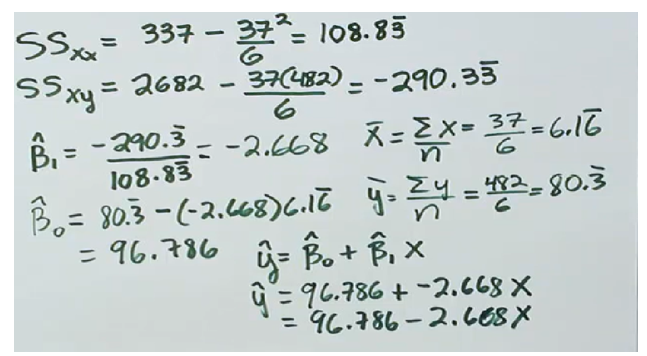 SSxx = 337 - 37²/6 = 108.83̄
SSxy = 2682 - 37(482)/6 = -290.33̄
β̂₁ = -290.3̄/108.83̄ = -2.668
x̄ = Σx/n = 37/6 = 6.16̄
β̂₀ = 80.3̄ - (-2.668)6.16̄
ȳ = Σy/n = 482/6 = 80.3̄
= 96.786
ŷ = β̂₀ + β̂₁ x
ŷ = 96.786 + -2.668x
= 96.786 - 2.668x